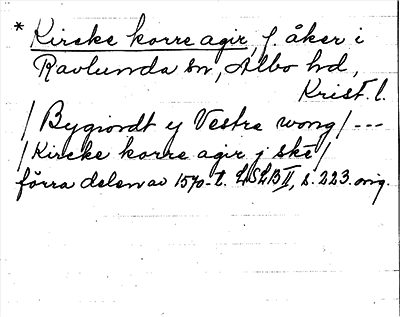 * Kircke korre agir, f. åker i
Ravlunda sn, Albo hd,
Krist. l.
/ Bygiordt y Vestre wong / ---
/ Kircke korre agir j skè /
förra delen av 1570-t. LSLB II, s. 223. orig.